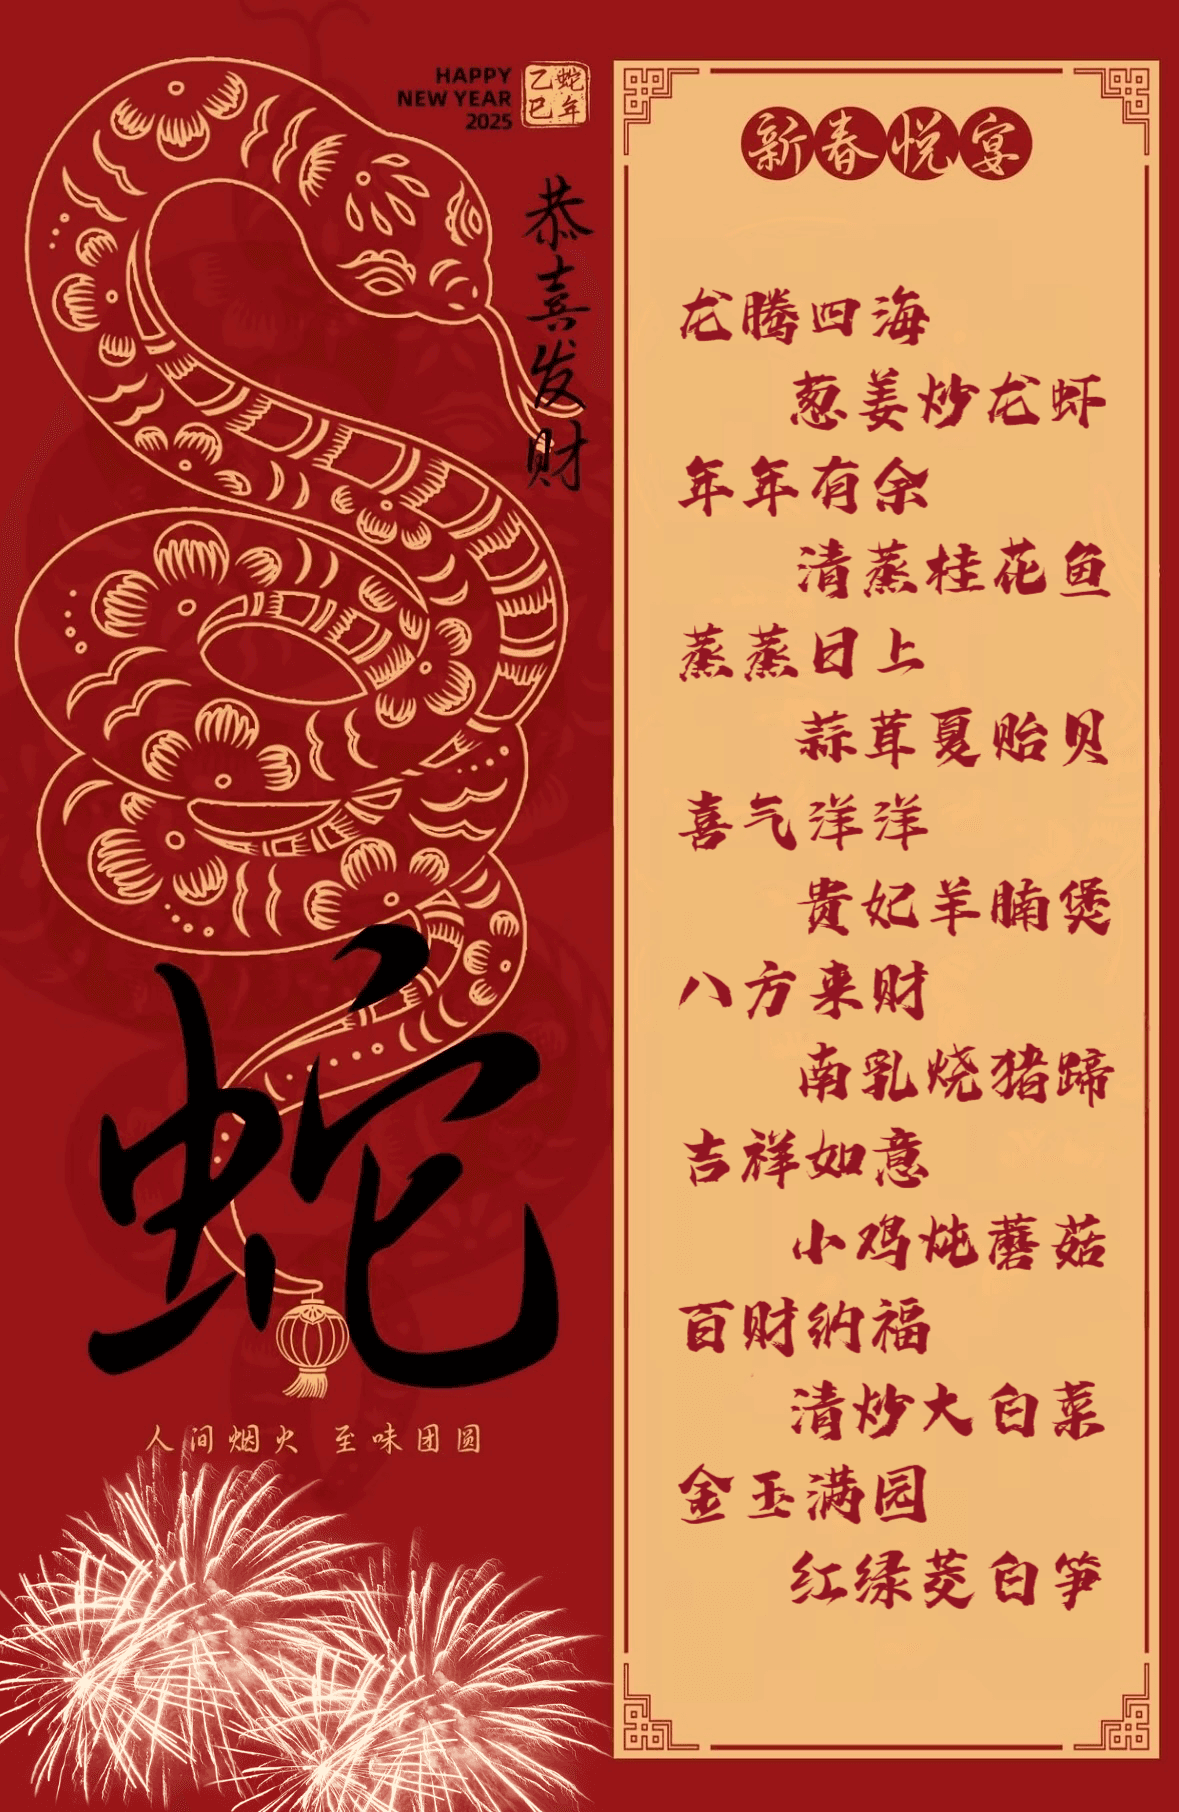 HAPPY
NEW YEAR
2025
乙巳
蛇年
恭喜发财
蛇
人间烟火 至味团圆
新春悦宴
龙腾四海
葱姜炒龙虾
年年有余
清蒸桂花鱼
蒸蒸日上
蒜茸夏贻贝
喜气洋洋
贵妃羊腩煲
八方来财
南乳烧猪蹄
吉祥如意
小鸡炖蘑菇
百财纳福
清炒大白菜
金玉满园
红绿茭白笋